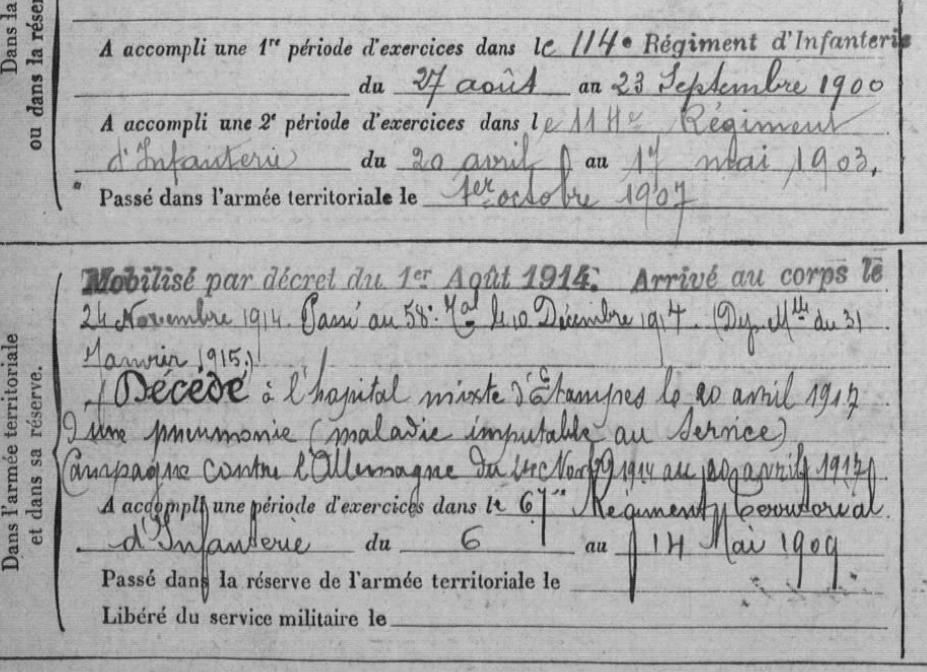 Dans la
ou dans la réser
A accompli une 1re période d'exercices dans le 114e Régiment d'Infanterie
du 27 août au 23 Septembre 1900
A accompli une 2e période d'exercices dans le 114e Régiment
d'Infanterie du 20 avril au 17 mai 1903.
Passé dans l'armée territoriale le 1er octobre 1907
Dans l'armée territoriale
et dans sa réserve.
Mobilisé par décret du 1er Août 1914. Arrivé au corps le
24 Novembre 1914. Passé au 58e le 10 Décembre 191 . (Dép. Mlle du 31
Janvier 1915.)
Décédé à l'hopital mixte d'Étampes le 20 avril 1917
d'une pneumonie (maladie imputable au service)
Campagne contre l'Allemagne du 24 Nov 1914 au 20 avril 1917
A accompli une période d'exercices dans le 67e Régiment Territorial
d'Infanterie du 6 au 14 Mai 1909
Passé dans la réserve de l'armée territoriale le
Libéré du service militaire le